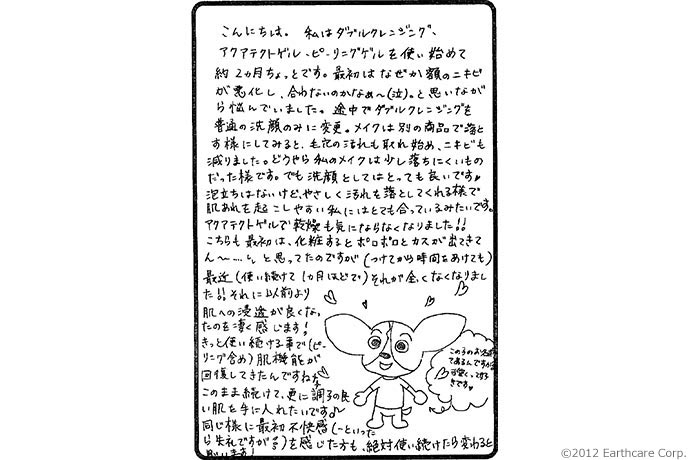 こんにちは。私はダブルクレンジング、
アクアテクトゲル、ピーリングゲルを使い始めて
約2ヵ月ちょっとです。最初はなぜか額のニキビ
が悪化し、合わないのかなぁ〜(泣)。と思いなが
ら悩んでいました。途中でダブルクレンジングを
普通の洗顔のみに変更。メイクは別の商品で落と
す様にしてみると、毛穴の汚れも取れ始め、ニキビも
減りました。どうやら私のメイクは少し落ちにくいもの
だった様です。でも洗顔としてはとっても良いです♥
泡立ちはないけど、やさしく汚れを落としてくれる様で
肌あれを起こしやすい私にはとても合っているみたいです。
アクアテクトゲルで乾燥も気にならなくなりました!!
こちらも最初は、化粧するとポロポロとカスが出てきて
ん〜…。と思ってたのですが(つけてから時間をあけても)
最近(使い続けて1ヵ月ほどで)それが全くなくなりまし
た!!それに以前より
肌への浸透が良くなっ
たのを凄く感じます!
きっと使い続ける事で(ピー
リング含め)肌機能が
回復してきたんですねぇ
このまま続けて、更に調子の良
い肌を手に入れたいです♪
同じ様に最初不快感(…といった
ら失礼ですが)を感じた方も、絶対使い続けたら変わると
思います!
この子のお洋服
可愛くて好
きです♥
©2012 Earthcare Corp.